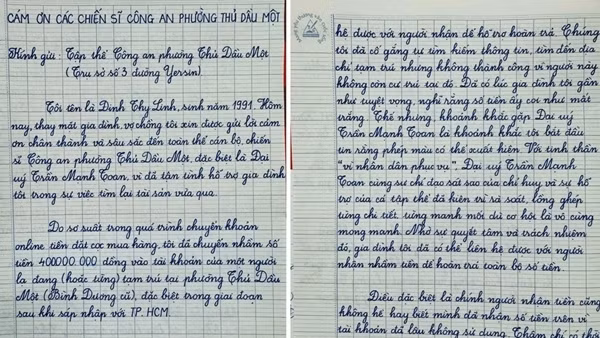 CẢM ƠN CÁC CHIẾN SĨ CÔNG AN PHƯỜNG THỦ DẦU MỘT
Kính gửi: Tập thể Công an phường Thủ Dầu Một
(Trụ sở số 3 đường Yersin)
Tôi tên là Đinh Thy Linh, sinh năm 1991. Hôm
nay, thay mặt gia đình, vợ chồng tôi xin được gửi lời cảm
ơn chân thành và sâu sắc đến toàn thể cán bộ, chiến
sĩ Công an phường Thủ Dầu Một, đặc biệt là Đại
uý Trần Mạnh Toan, vì đã tận tình hỗ trợ gia đình
tôi trong sự việc tìm lại tài sản vừa qua.
Do sơ suất trong quá trình chuyển khoản
online tiền đặt cọc mua hàng, tôi đã chuyển nhầm số
tiền 400.000.000 đồng vào tài khoản của một người
lạ đang (hoặc từng) tạm trú tại phường Thủ Dầu
Một (Bình Dương cũ), đặc biệt trong giai đoạn
sau khi sáp nhập với TP. HCM.
hệ được với người nhận để hỗ trợ hoàn trả. Chúng
tôi đã cố gắng tự tìm kiếm thông tin, tìm đến địa
chỉ tạm trú nhưng không thành công vì người này
không còn cư trú tại đó. Đã có lúc gia đình tôi gần
như tuyệt vọng, nghĩ rằng số tiền ấy coi như mất
trắng. Thế nhưng, khoảnh khắc gặp Đại uý
Trần Mạnh Toan là khoảnh khắc tôi bắt đầu
tin rằng phép màu có thể xuất hiện. Với tinh thần
"vì nhân dân phục vụ", Đại uý Trần Mạnh
Toan cùng sự chỉ đạo sát sao của chỉ huy và sự hỗ
trợ của cả tập thể đã kiên trì rà soát, lồng ghép
từng chi tiết, từng manh mối dù cơ hội là vô cùng
mong manh. Nhờ sự quyết tâm và trách nhiệm
đó, gia đình tôi đã có thể liên hệ được với người
nhận nhầm tiền để hoàn trả toàn bộ số tiền.
Điều đặc biệt là chính người nhận tiền cũng
không hề hay biết mình đã nhận số tiền trên vì
tài khoản đã lâu không sử dụng. Thậm chí có thời